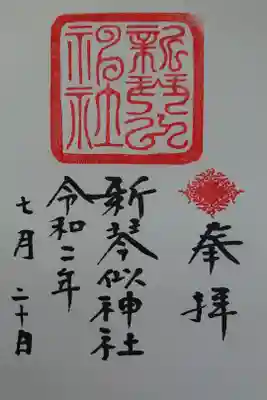 新琴似
神社
奉拝
新琴似神社
令和二年
七月二十日